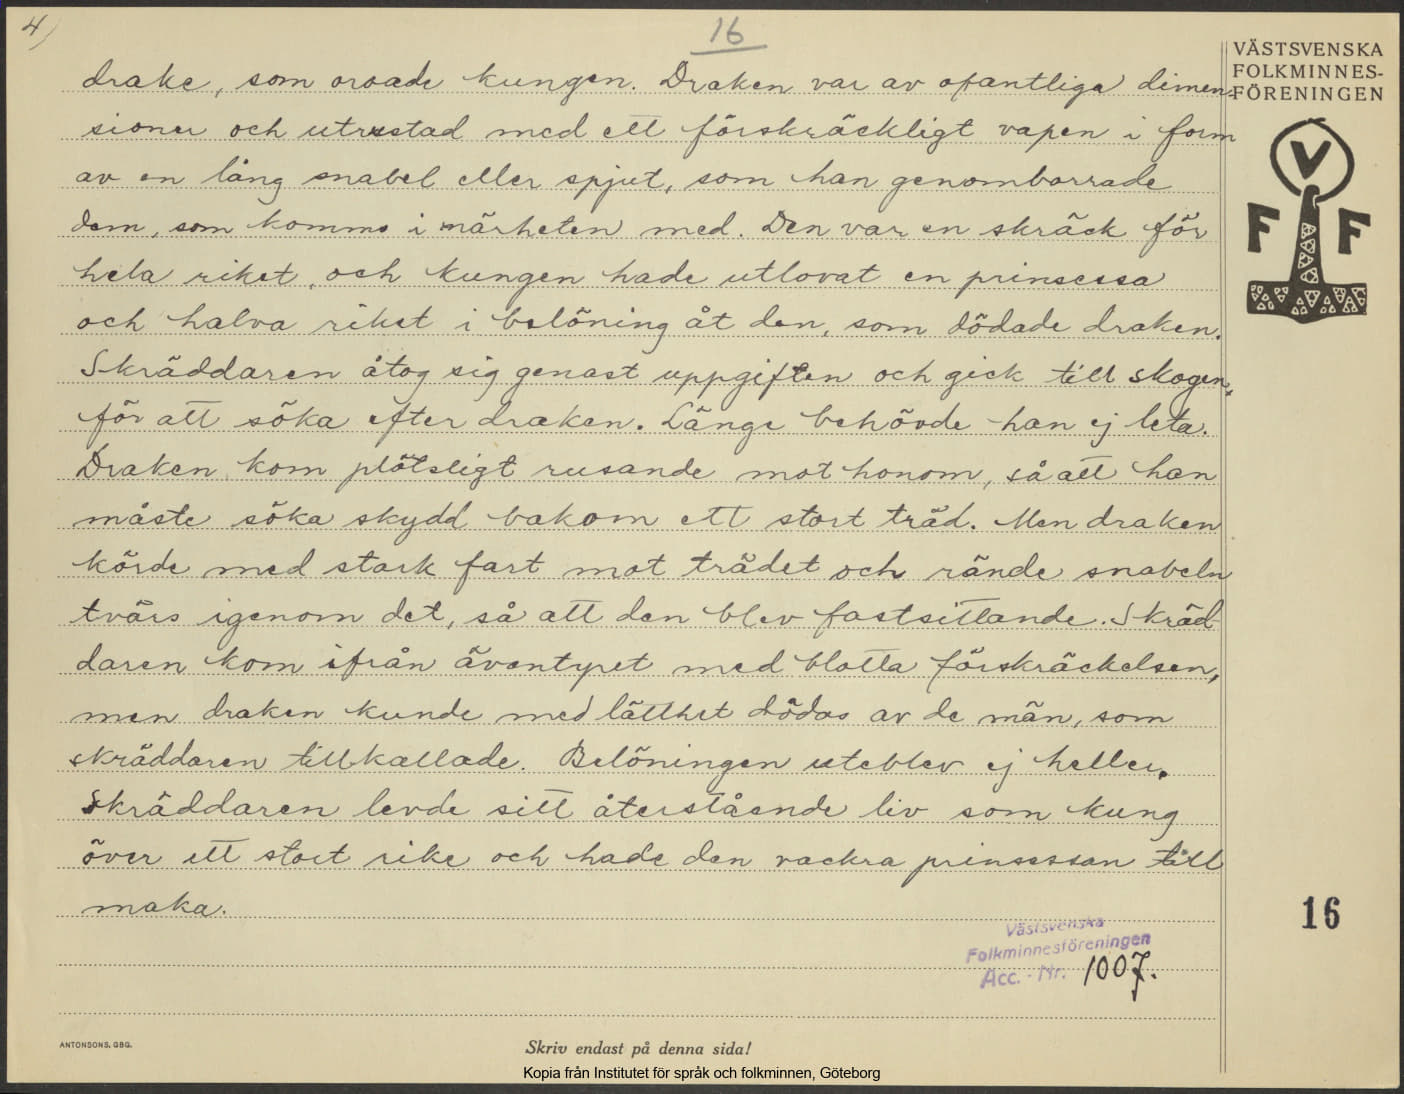 4)
16
VÄSTSVENSKA
FOLKMINNES-
FÖRENINGEN
drake, som oroade kungen. Draken var av ofantliga dimen-
sioner och utrustad med ett förskräckligt vapen i form
av en lång snabel eller spjut, som han genomborrade
dem, som komma i närheten med. Den var en skräck för
hela riket, och kungen hade utlovat en prinsessa
och halva riket i belöning åt den, som dödade draken.
Skräddaren åtog sig genast uppgiften och gick till skogen,
för att söka efter draken. Länge behövde han ej leta.
Draken kom plötsligt rusande mot honom, så att han
måste söka skydd bakom ett stort träd. Men draken
körde med stark fart mot trädet och rände snabeln
tvärs igenom det, så att den blev fastsittande. Skräd-
daren kom ifrån äventyret med blotta förskräckelsen,
men draken kunde med lätthet dödas av de män, som
skräddaren tillkallade. Belöningen uteblev ej heller.
Skräddaren levde sitt återstående liv som kung
över ett stort rike och hade den vackra prinsessan till
maka.
V
F F
16
Västsvenska
Folkminnesföreningen
Acc. - Nr. 1007.
ANTONSONS, GBG.
Skriv endast på denna sida!
Kopia från Institutet för språk och folkminnen, Göteborg